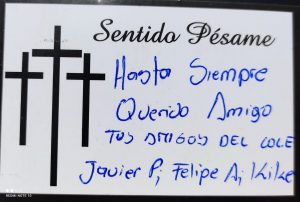 Sentido Pésame
Hasta Siempre
Querido Amigo
TUS AMIGOS DEL COLE
Javier P; Felipe A; Kike